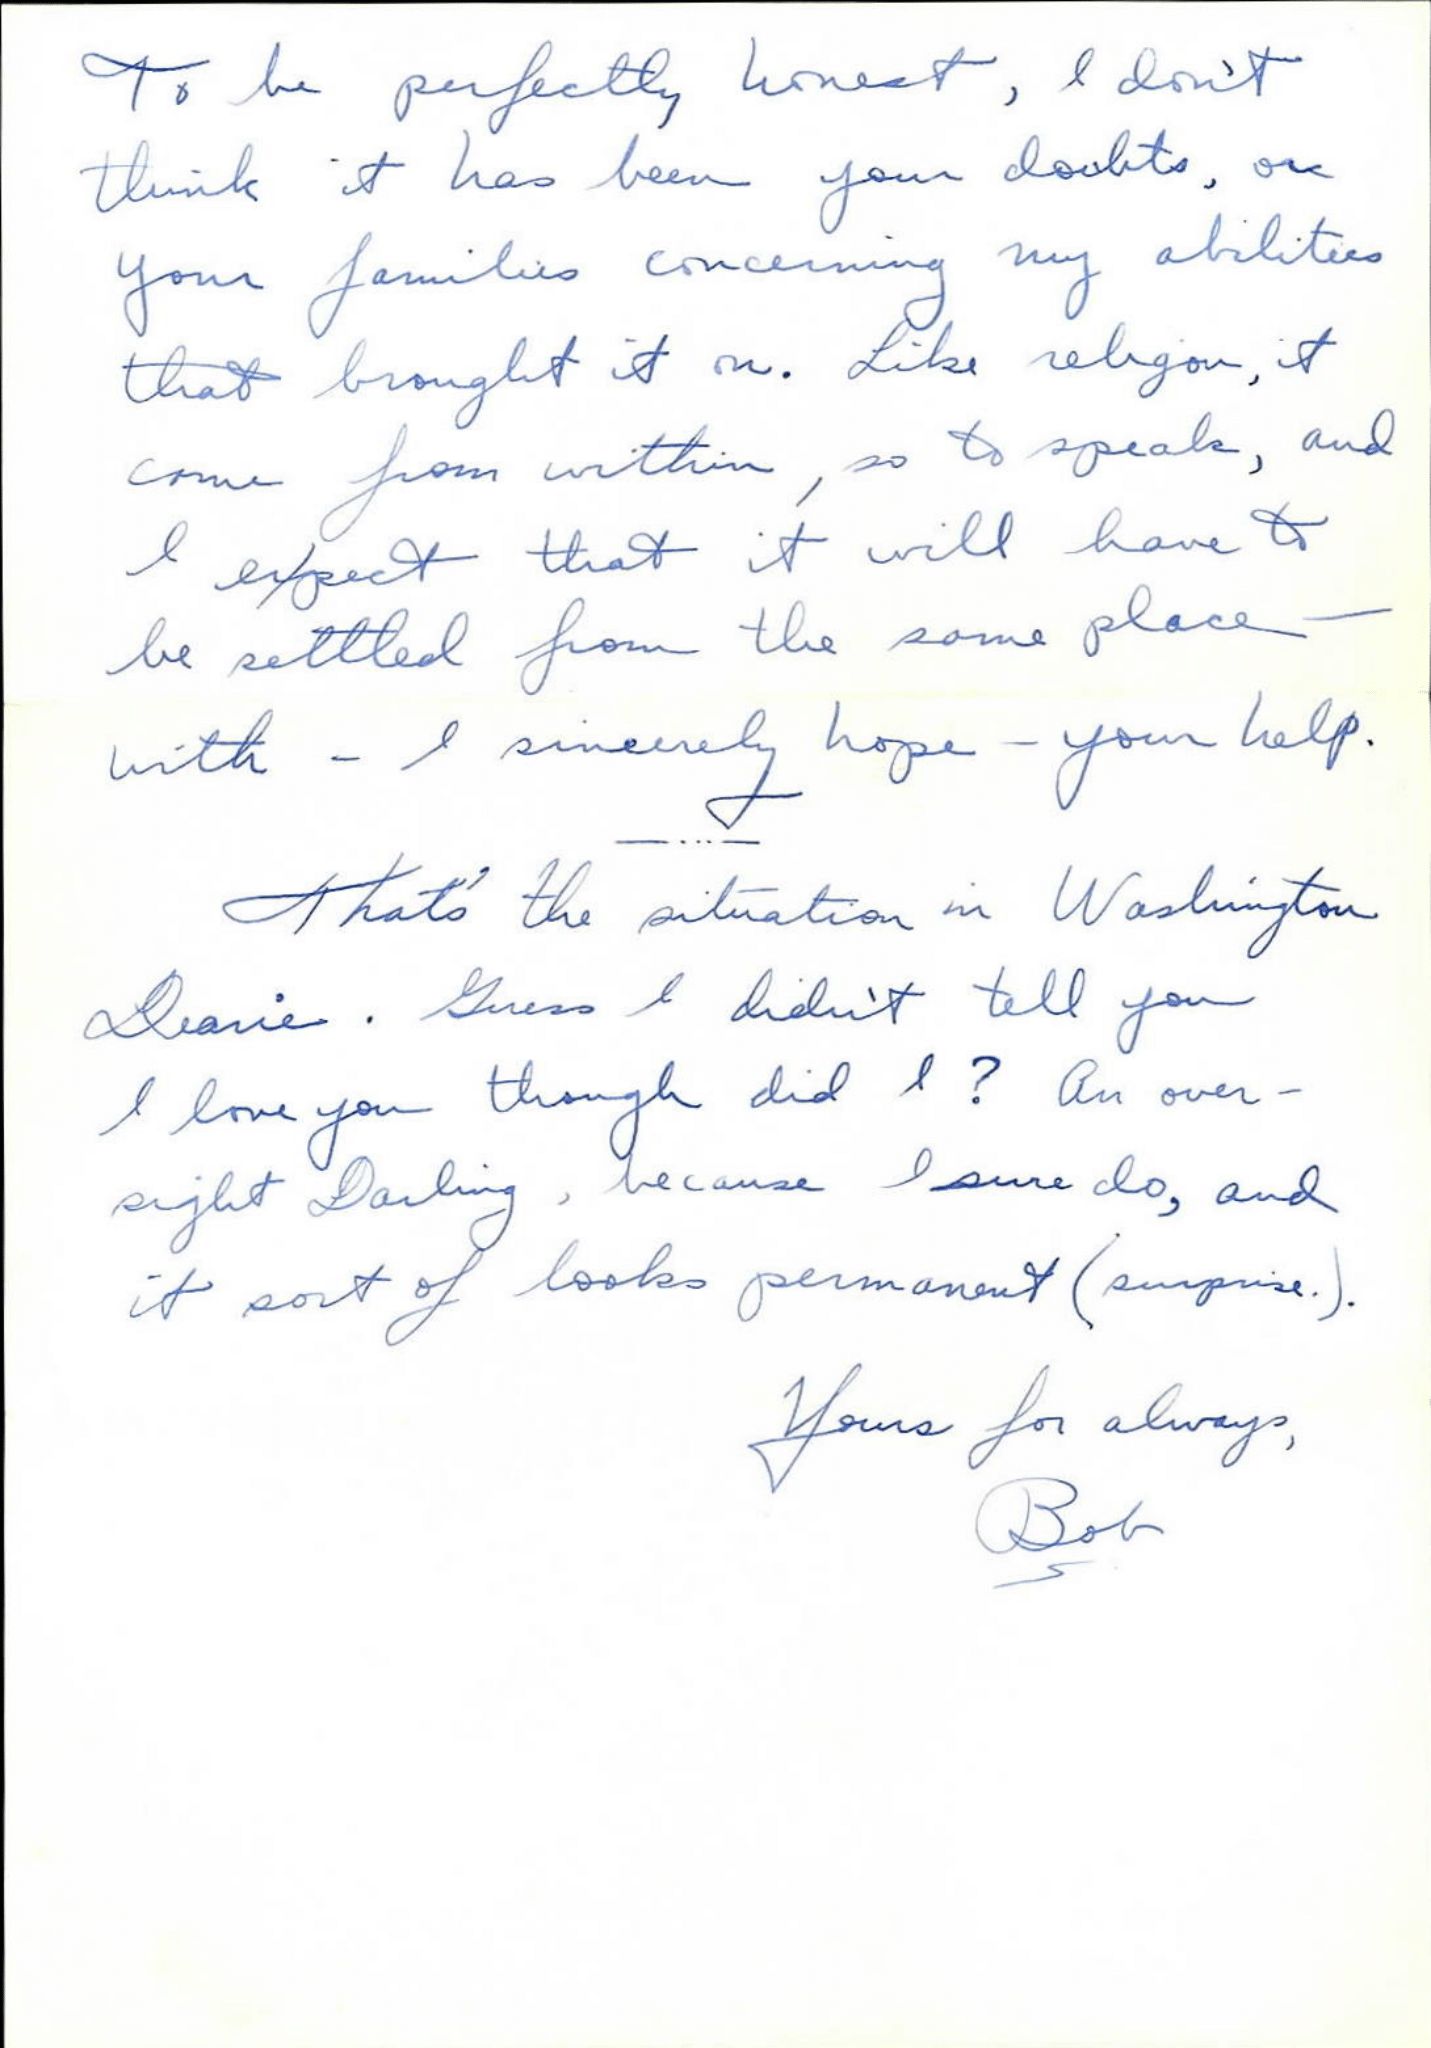 To be perfectly honest, I don't
think it has been your doubts, or
your families concerning my abilities
that brought it on. Like religon, it
come from within, so to speak, and
I expect that it will have to
be settled from the same place—
with - I sincerely hope - your help.
— ... —
That's the situation in Washington
Dearie. Guess I didn't tell you
I love you though did I? An over-
sight Darling, because I sure do, and
it sort of looks permanent (surprise.).
Yours for always,
Bob